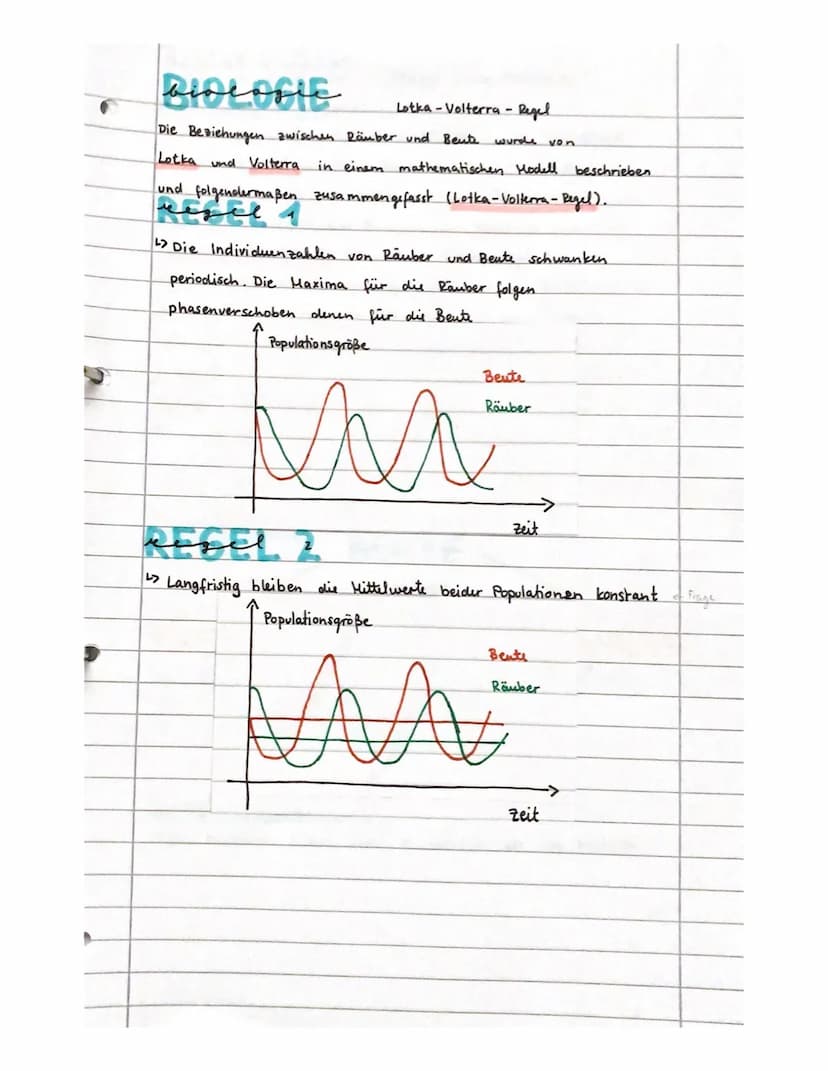 BIOLOGIE
biologie
Lotka-Volterra-Regel
Die Beziehungen zwischen Räuber und Beute wurde von
Lotka und Volterra in einem mathematischen Modell beschrieben
und folgendermaßen zusammengefasst (Lotka-Volterra-Regel).
REGEL 1
regel
↳ Die Individuenzahlen von Räuber und Beute schwanken
periodisch. Die Maxima für die Räuber folgen
phasenverschoben denen für die Beute
Populationsgröße
Beute
Räuber
Zeit
REGEL 2
regel 2
↳ Langfristig bleiben die Mittelwerte beider Populationen konstant ← Frage
Populationsgröße
Beute
Räuber
Zeit